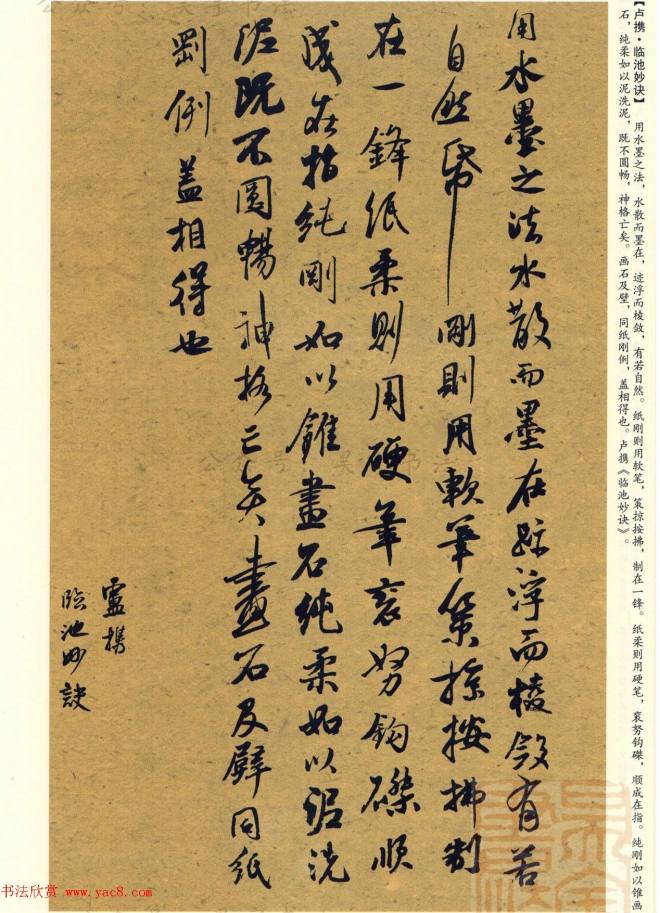 用水墨之法水散而墨在跡浮而棱斂有若
自然帋剛則用軟筆策掠按拂制
在一鋒紙柔則用硬筆衮努鈎磔順
成在指纯剛如以錐畫石纯柔如以泥洗
泥既不圓暢神格亡矣畫石及壁同紙
剛例蓋相得也
盧攜
臨池妙訣
【卢携·临池妙诀】 用水墨之法，水散而墨在，迹浮而棱敛，有若自然。纸刚则用软笔，策掠按拂，制在一锋。纸柔则用硬笔，衮努钩磔，顺成在指。纯刚如以锥画
石，纯柔如以泥洗泥，既不圆畅，神格亡矣。画石及壁，同纸刚例，盖相得也。卢携《临池妙诀》。
书法欣赏 www.yac8.com